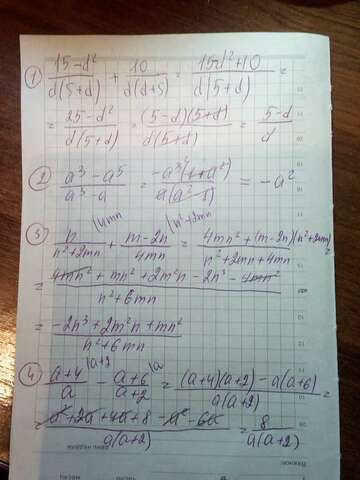 ① (15-d²)/(d(5+d)) + 10/(d(d+5)) = (15d²+10)/(d(5+d)) =
= (25-d²)/(d(5+d)) = ((5-d)(5+d))/(d(5+d)) = (5-d)/d
② (a³-a⁵)/(a³-a) = = -a²
③ n/(n²+2mn) |4mn + (m-2n)/(4mn) |n²+2mn = (4mn²+(m-2n)(n²+2mn))/(n²+2mn+4mn) =
= (4mn²+mn²+2m²n-2n³-4mn²)/(n²+6mn)
= (-2n³+2m²n+mn²)/(n²+6mn)
④ (a+4)/a |a+2 - (a+6)/(a+2) |a = ((a+4)(a+2)-a(a+6))/(a(a+2)) =
= (a²+2a+4a+8-a²-6a)/(a(a+2)) = 8/(a(a+2))